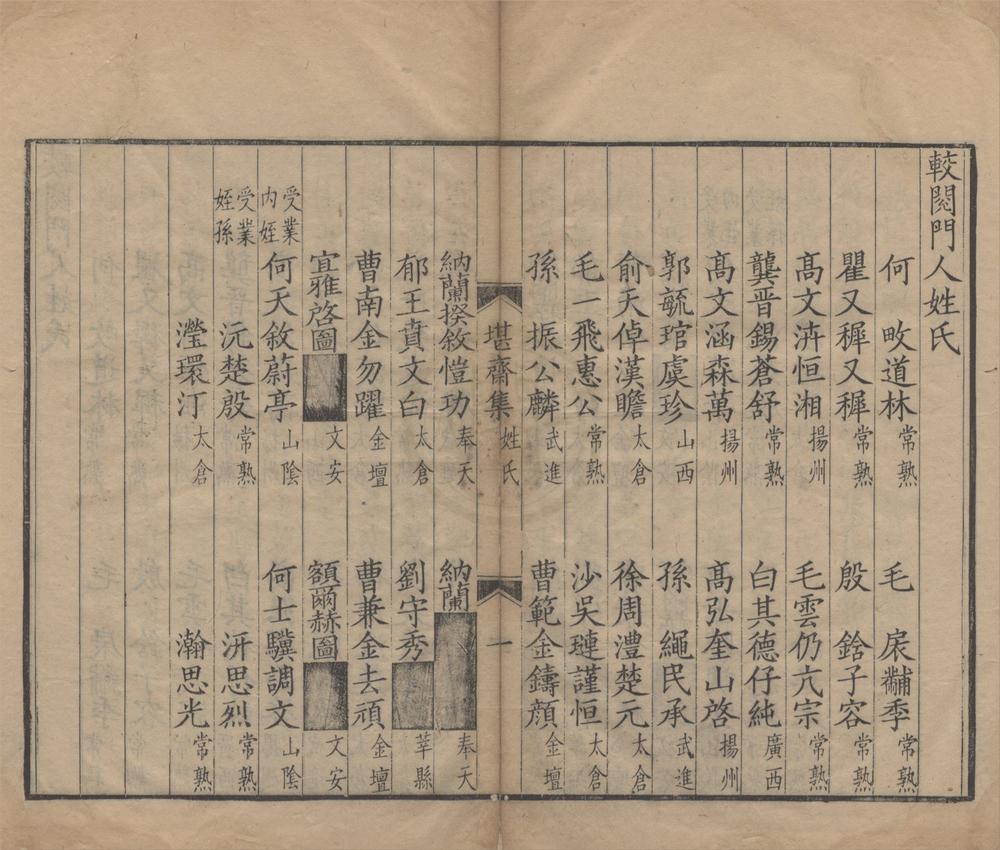 較閱門人姓氏
何　畋道林　常熟　毛　扆黼季　常熟
瞿又穉又穉　常熟　殷　鋡子容　常熟
高文洊恒湘　揚州　毛雲仍亢宗　常熟
龔晋錫蒼舒　常熟　白其德仔純　廣西
高文涵森萬　揚州　高弘奎山啓　揚州
郭毓琯虞珍　山西　孫　繩民承　武進
俞天倬漢瞻　太倉　徐周澧楚元　太倉
毛一飛惠公　常熟　沙吳璉謹恒　太倉
孫　振公麟　武進　曹範金鑄顔　金壇
堪齋集　姓氏　一
納蘭揆敘愷功　奉天　納蘭　奉天
郁王賁文白　太倉　劉守秀　莘縣
曹南金勿躍　金壇　曹兼金去頑　金壇
宜雅啓圖　文安　額爾赫圖　文安
受業內姪　何天敘蔚亭　山陰　何士驥調文　山陰
受業姪孫　沅楚殷　常熟　汧思烈　常熟
瀅環汀　太倉　瀚思光　常熟